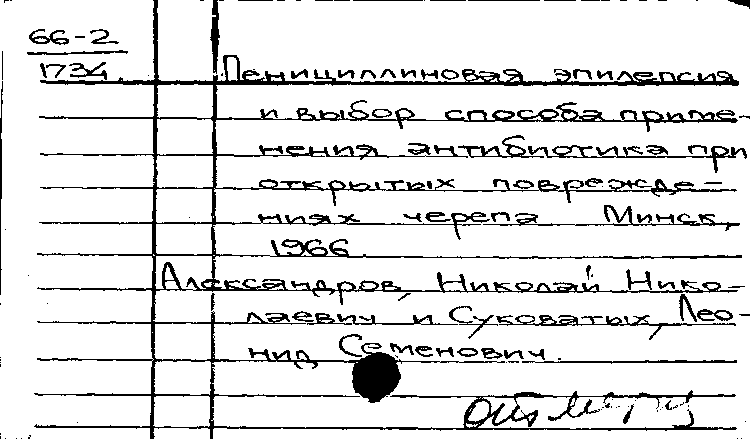 66-2
1734.
Пенициллиновая эпилепсия
и выбор способа приме-
нения антибиотика при
открытых поврежде-
ниях черепа Минск,
1966.
Александров, Николай Нико-
лаевич и Суковатых, Лео-
нид Семенович.